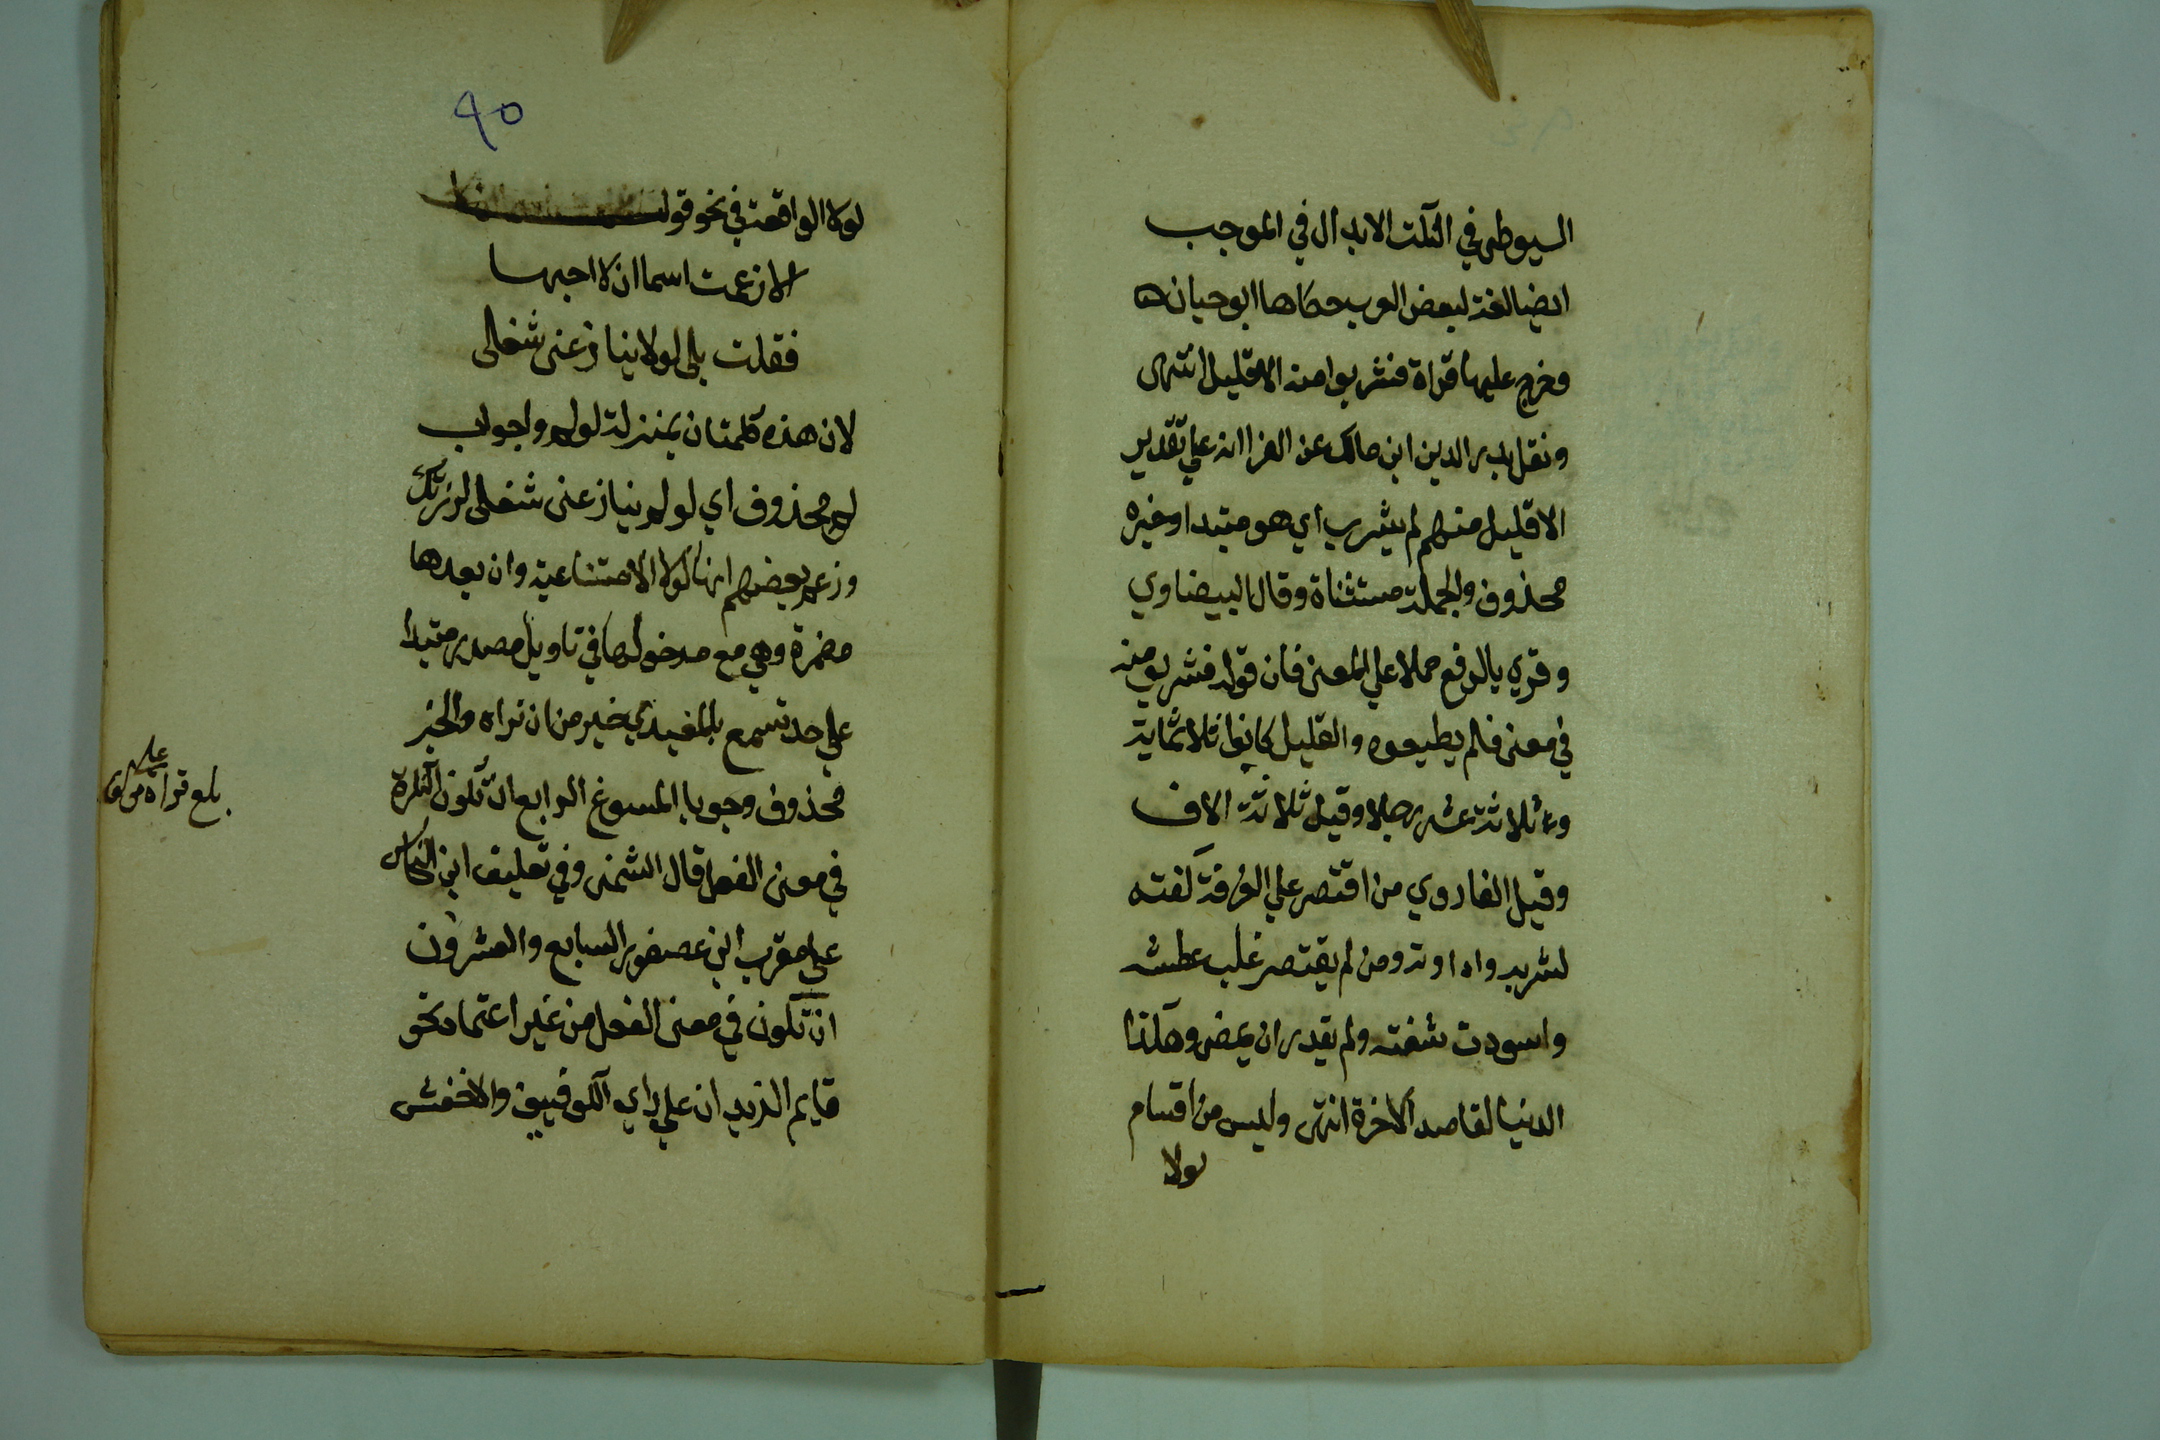 السيوطي في النكت الابدال في الموجب
ايضا لغة لبعض العرب حكاها ابو حيان ه
وخرج عليها قراة فشربوا منه الا قليل انتهى
ونقل بدر الدين ابن مالك عن الفرا انه علي تقدير
الا قليل منهم لم يشرب اي هو مبتدا وخبره
محذوف والجملة مستثناة وقال البيضاوي
وقري بالرفع حملا علي المعنى فان قوله فشربو منه
في معنى فلم يطيعوه والقليل كانوا ثلاثماية
وثلاثة عشر رجلا وقيل ثلاثة الاف
وقيل الفاروي من اقتصر علي الغرفة كفته
لشربه واداوته ومن لم يقتصر غلب عطشه
واسودت شفته ولم يقدر ان يمضى وهكذا
الدنيا لقاصد الاخرة انتهى وليس من اقسام
لولا
٩٥
لولا الواقعة في نحو قوله
الا زعمت اسما ان لا احبها
فقلت بلى لولا ينازعنى شغلى
لان هذه كلمتان بمنزلة لو لم وجواب
لو محذوف اي لو لم ينازعنى شغلى لزرتك
وزعم بعضهم انها لولا الامتناعية وان بعدها
مضمرة وهي مع مدخولها في تاويل مصدر مبتدا
علي حد تسمع بالمعيدي خير من ان تراه والخبر
محذوف وجوبا المسوغ الرابع ان تكون النكرة
في معنى الفعل قال الشمنى وفي تعليق ابن النحاس
علي مقرب ابن عصفور السابع والعشرون
ان تكون في معنى الفعل من غير اعتماد نحو
قايم الزيدان علي راي الكوفيين والاخفش
بلغ قراة علي